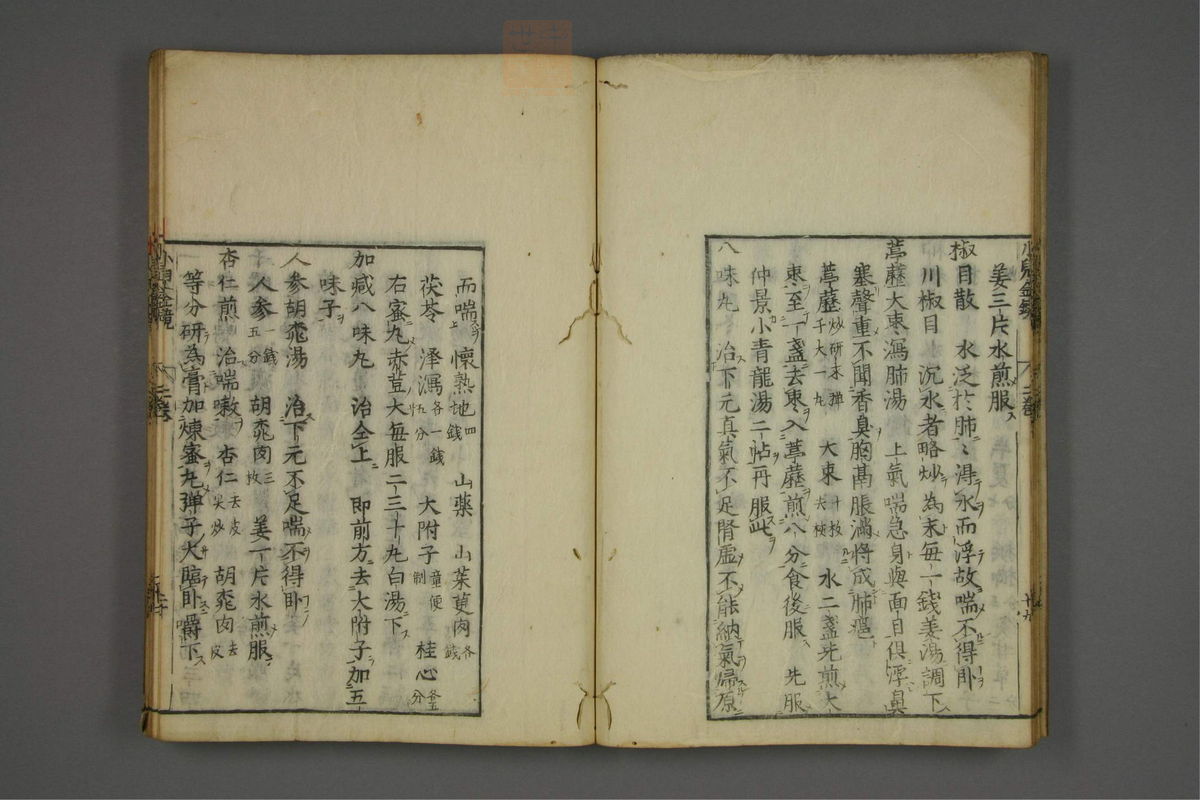 姜三片水煎服
椒目散　水泛於肺〻得水而浮故喘不得卧
川椒目水沉水者略炒為末每一錢姜湯調下
葶藶大枣瀉肺湯　上氣喘急身與面目俱浮鼻
塞聲重不聞香臭胸鬲脹滿將成肺癰
葶藶炒研末弹子大一九　大枣十枚去核　水二盞先煎大
枣至一盞去枣入葶藶煎八分食後服　先服
仲景小青龍湯二帖再服此
八味丸　治下元真氣不足腎虛不能納氣歸原
而喘上　懷熟地四錢　山藥　山茱萸肉各錢
茯苓　澤瀉各一錢五分　大附子童便制　桂心各五分
右蜜丸赤荳大每服二三十丸白湯下
加减八味丸　治仝上　即前方去大附子加五
味子
人参胡桃湯　治下元不足喘不得卧
人参一錢五分　胡桃肉三枚　姜一片水煎服
杏仁煎　治喘嗽　杏仁去皮尖炒　胡桃肉去皮
等分研為膏加煉蜜丸弹子大臨卧嚼下